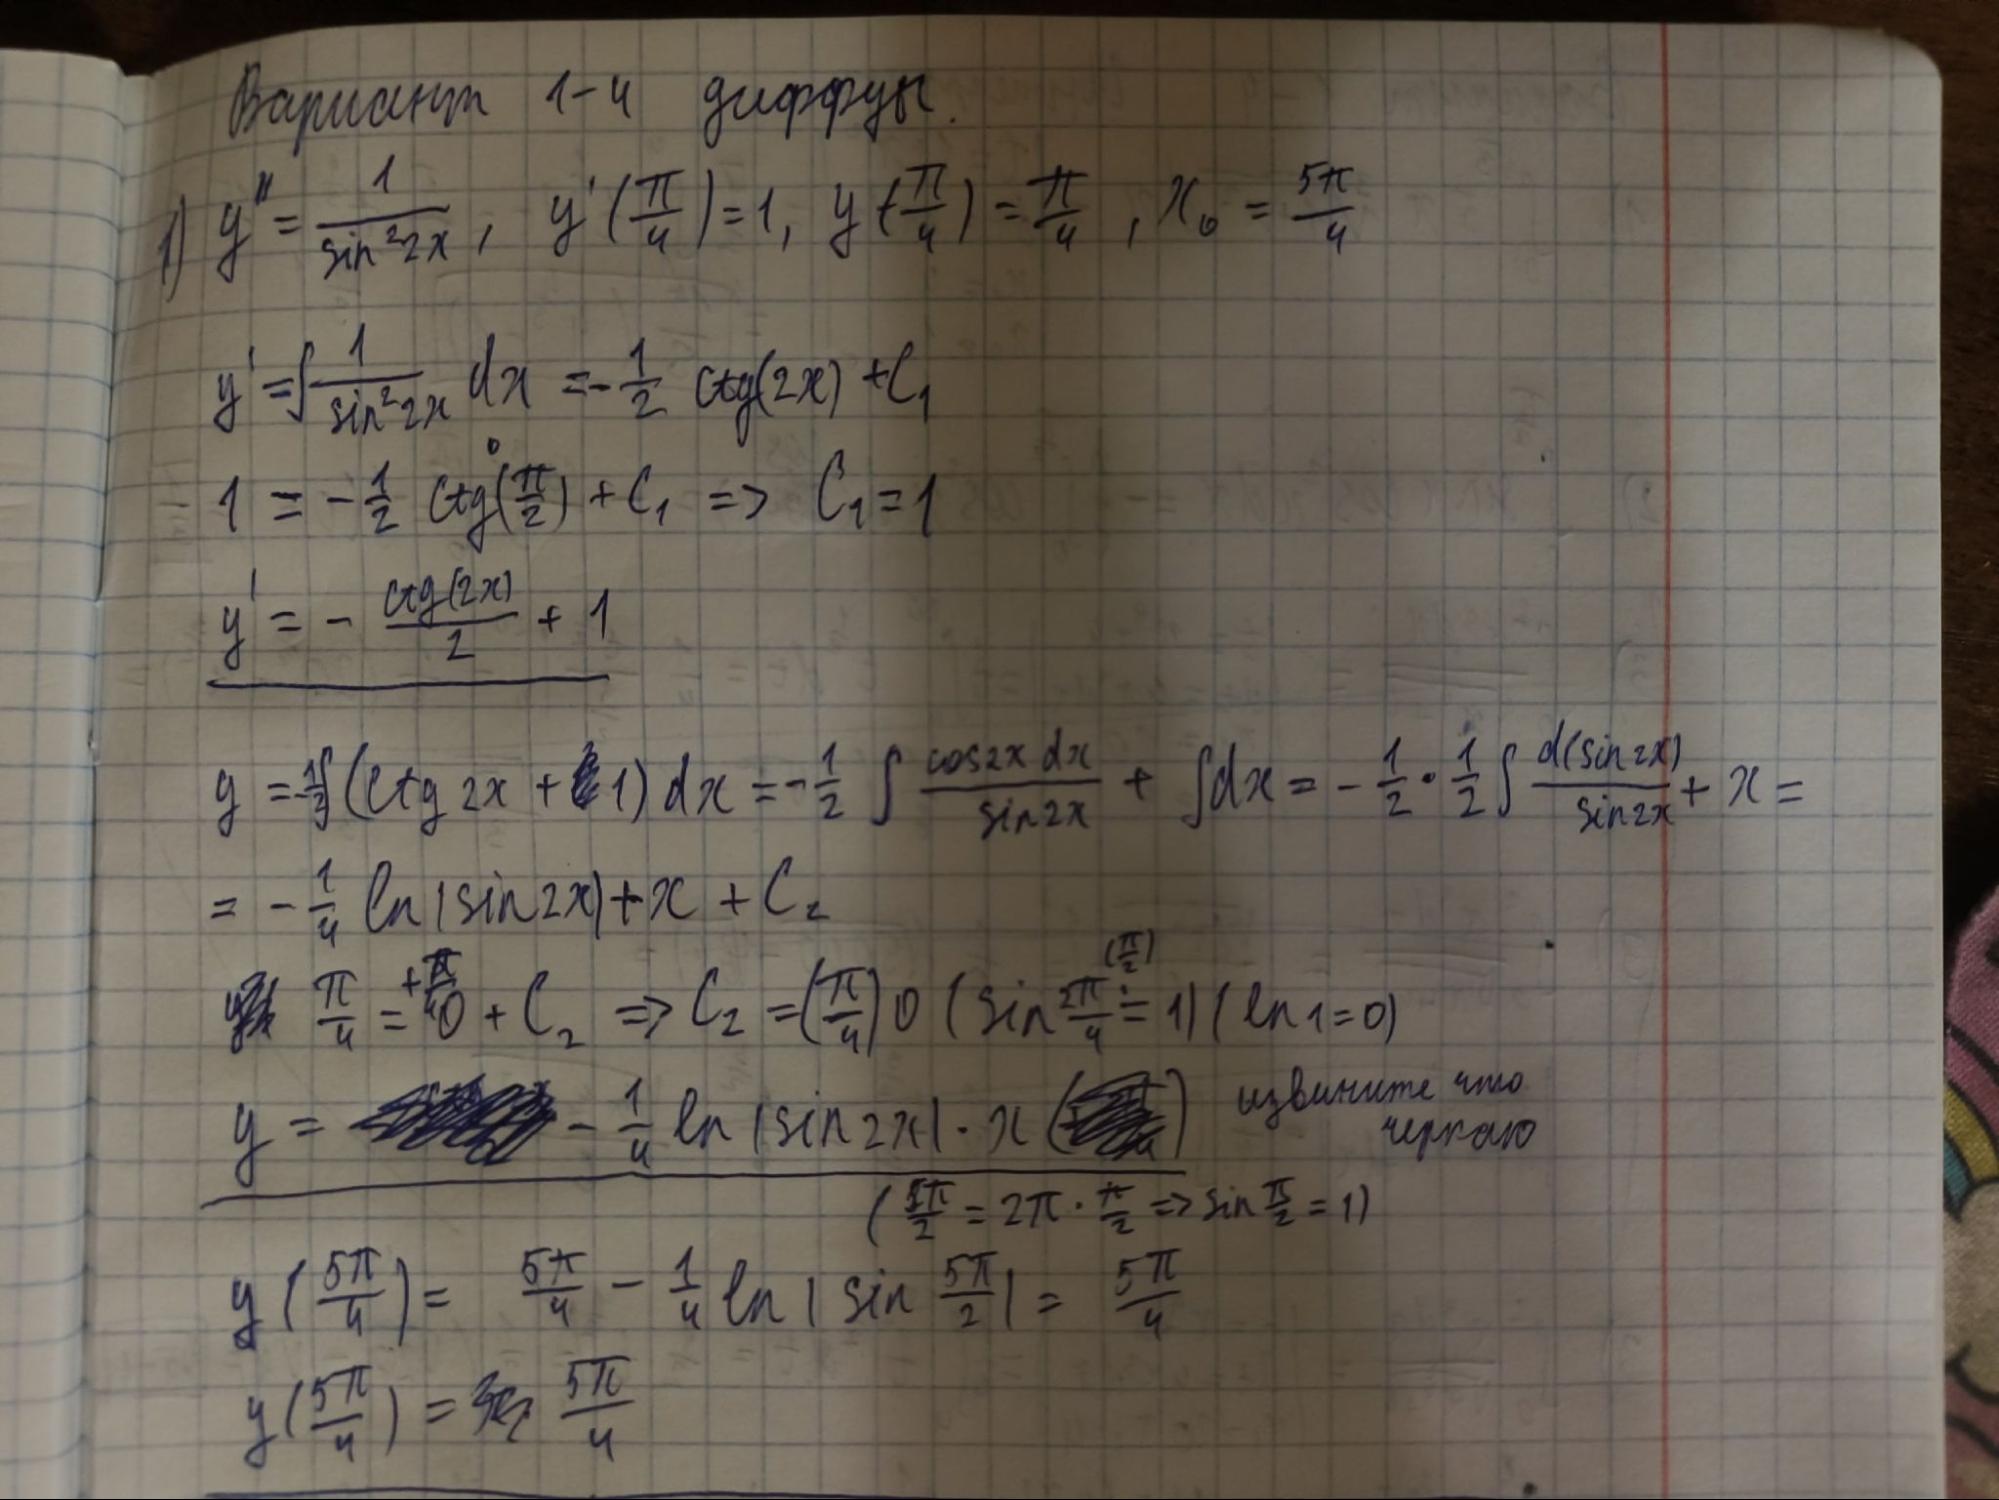 Вариант 1-4 диффуры.
1) y'' = 1/sin²2x, y'(π/4) = 1, y(π/4) = π/4, x₀ = 5π/4
y' = ∫ 1/sin²2x dx = -1/2 ctg(2x) + C₁
1 = -1/2 ctg(π/2) + C₁ => C₁ = 1
y' = - ctg(2x)/2 + 1
y = -1/2 ∫(ctg 2x + 1) dx = -1/2 ∫ cos2x dx/sin2x + ∫dx = -1/2 · 1/2 ∫ d(sin2x)/sin2x + x =
= -1/4 ln|sin2x| + x + C₂
π/4 = +π/4 0 + C₂ => C₂ = (π/4) 0 (sin 2π/4 (π/2) = 1) (ln 1 = 0)
y = -1/4 ln|sin2x| · x извините что
черкаю
(5π/2 = 2π · π/2 => sin π/2 = 1)
y(5π/4) = 5π/4 - 1/4 ln|sin 5π/2| = 5π/4
y(5π/4) = 5π/4